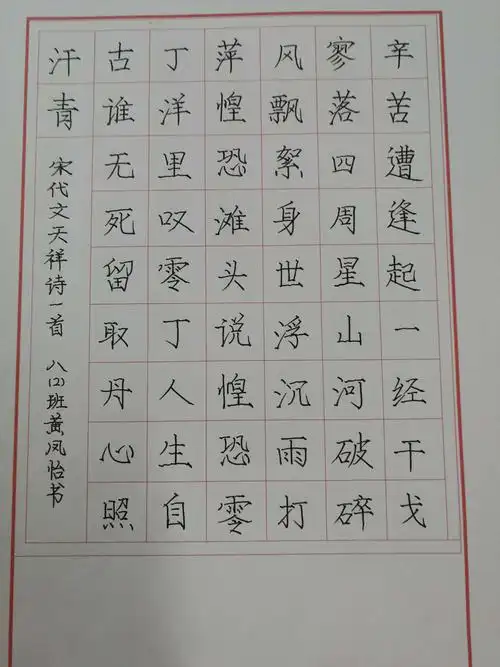 辛苦遭逢起一经干戈
寥落四周星山河破碎
风飘絮身世浮沉雨打
萍惶恐滩头说惶恐零
丁洋里叹零丁人生自
古谁无死留取丹心照
汗青
宋代文天祥诗一首 八(2)班黄凤怡书